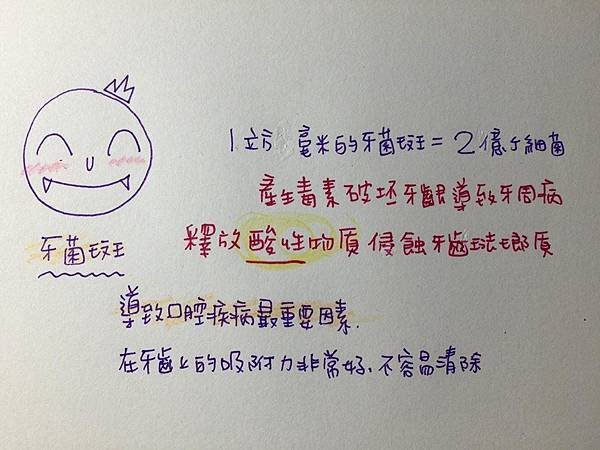 1立方毫米的牙菌斑=2億個細菌
產生毒素破坏牙齦導致牙周病
釋放酸性物質侵蝕牙齒琺瑯質
牙菌斑
導致口腔疾病最重要因素.
在牙齒上的吸附力非常好、不容易清除